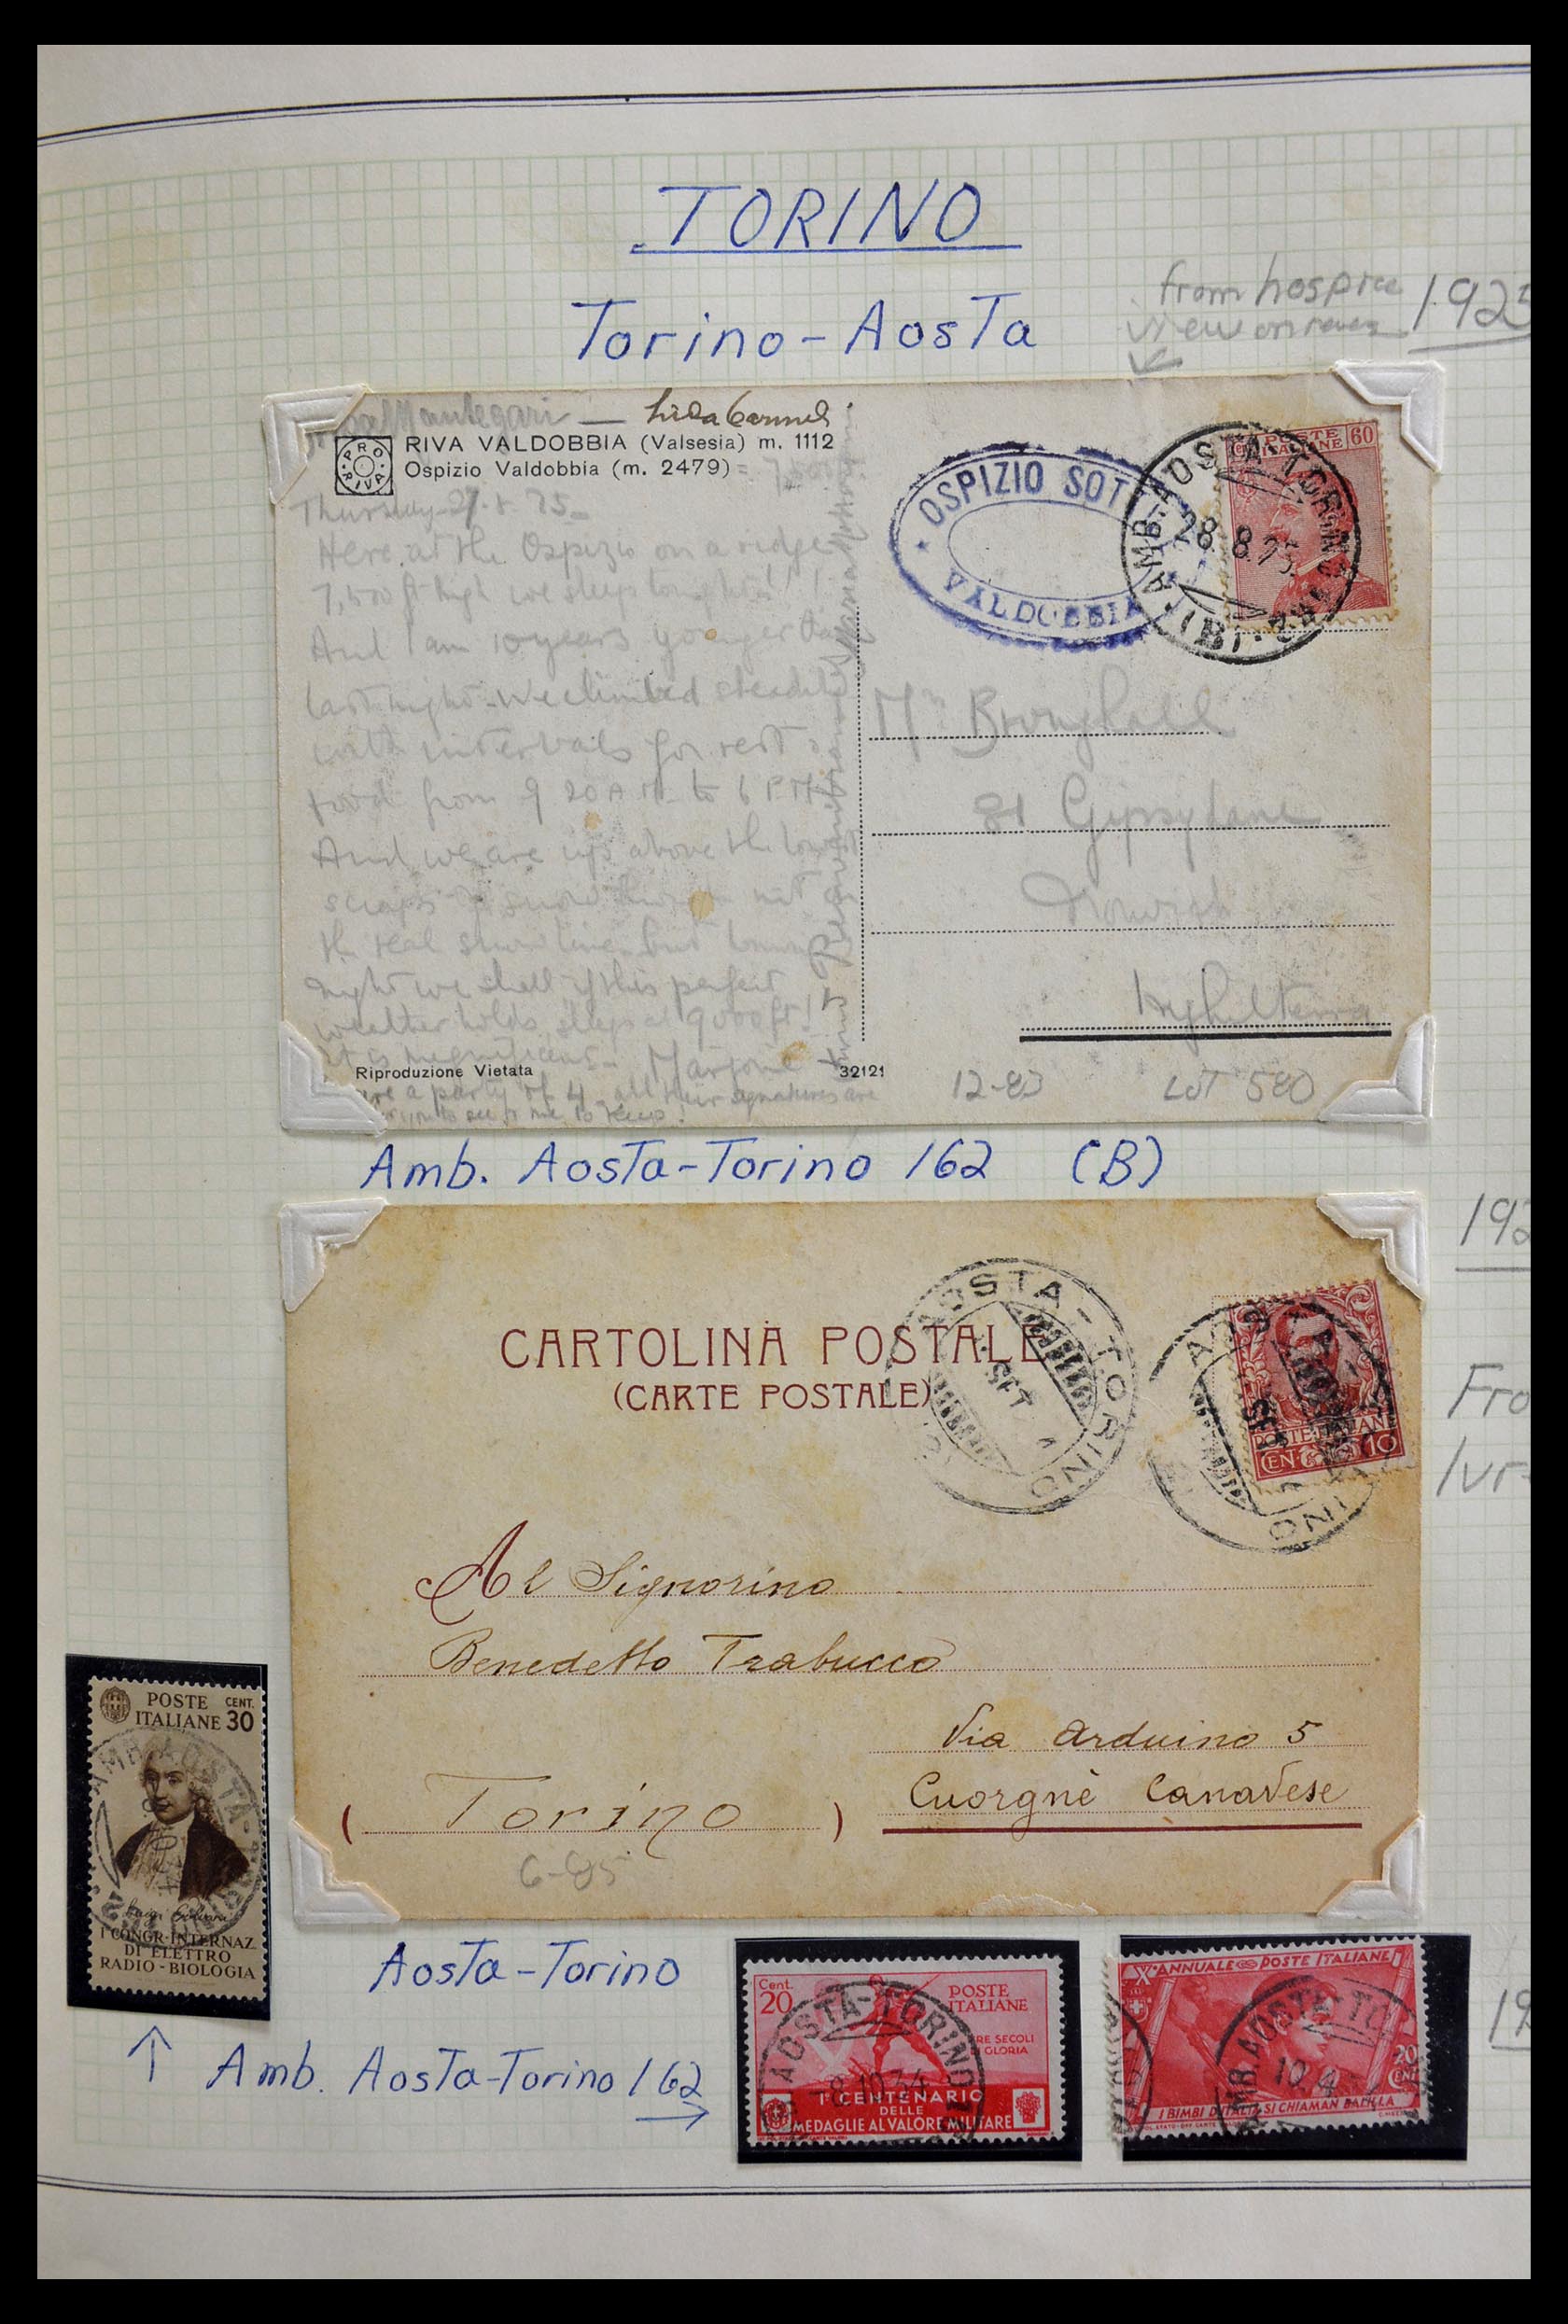 TORINO
Torino-Aosta
from hospice
view on
1925
Lida
PRO
RIVA
RIVA VALDOBBIA (Valsesia) m. 1112
Ospizio Valdobbia (m. 2479)
= 7500
Thursday
Here at the Ospizio on a ridge
7,500 ft high we sleep tonight!!
And I am 10 years younger than
last night. We climbed steadily
with intervals for rest &
food from 9 20 A M to 6 P M
And we are up above the lowest
scraps of snow
the real snow line but
night we shall if this perfect
weather holds sleep at 9000 ft!
it is magnificent - Marjorie
are a party of 4 - all their signatures are
OSPIZIO SOT
VALDOBBIA
AMB. AOSTA-TORINO 162
28.8.25
(B)
POSTE ITALIANE 60
81 Gipsy Lane
Norwich
Inghilterra
Riproduzione Vietata
32121
12-83
LOT 580
Amb. Aosta-Torino 162 (B)
CARTOLINA POSTALE
(CARTE POSTALE)
AOSTA-TORINO
SET
POSTE ITALIANE
CEN. 10
Al Signorino
Benedetto Trabucco
Via Arduino 5
Cuorgnè Canavese
( Torino )
6-85
192
Fro
Ivr
19
POSTE ITALIANE
CENT. 30
AMB. AOSTA-
I CONGR. INTERNAZ.
DI ELETTRO
RADIO-BIOLOGIA
Aosta-Torino
↑ Amb. Aosta-Torino 162 →
Cent. 20
POSTE ITALIANE
TRE SECOLI
DI GLORIA
AOSTA-TORINO
-8.10.34
I° CENTENARIO
DELLE
MEDAGLIE AL VALORE MILITARE
X° ANNUALE POSTE ITALIANE
AMB. AOSTA-TO
10.4
20
CENT
I BIMBI D'ITALIA SI CHIAMAN BALILLA